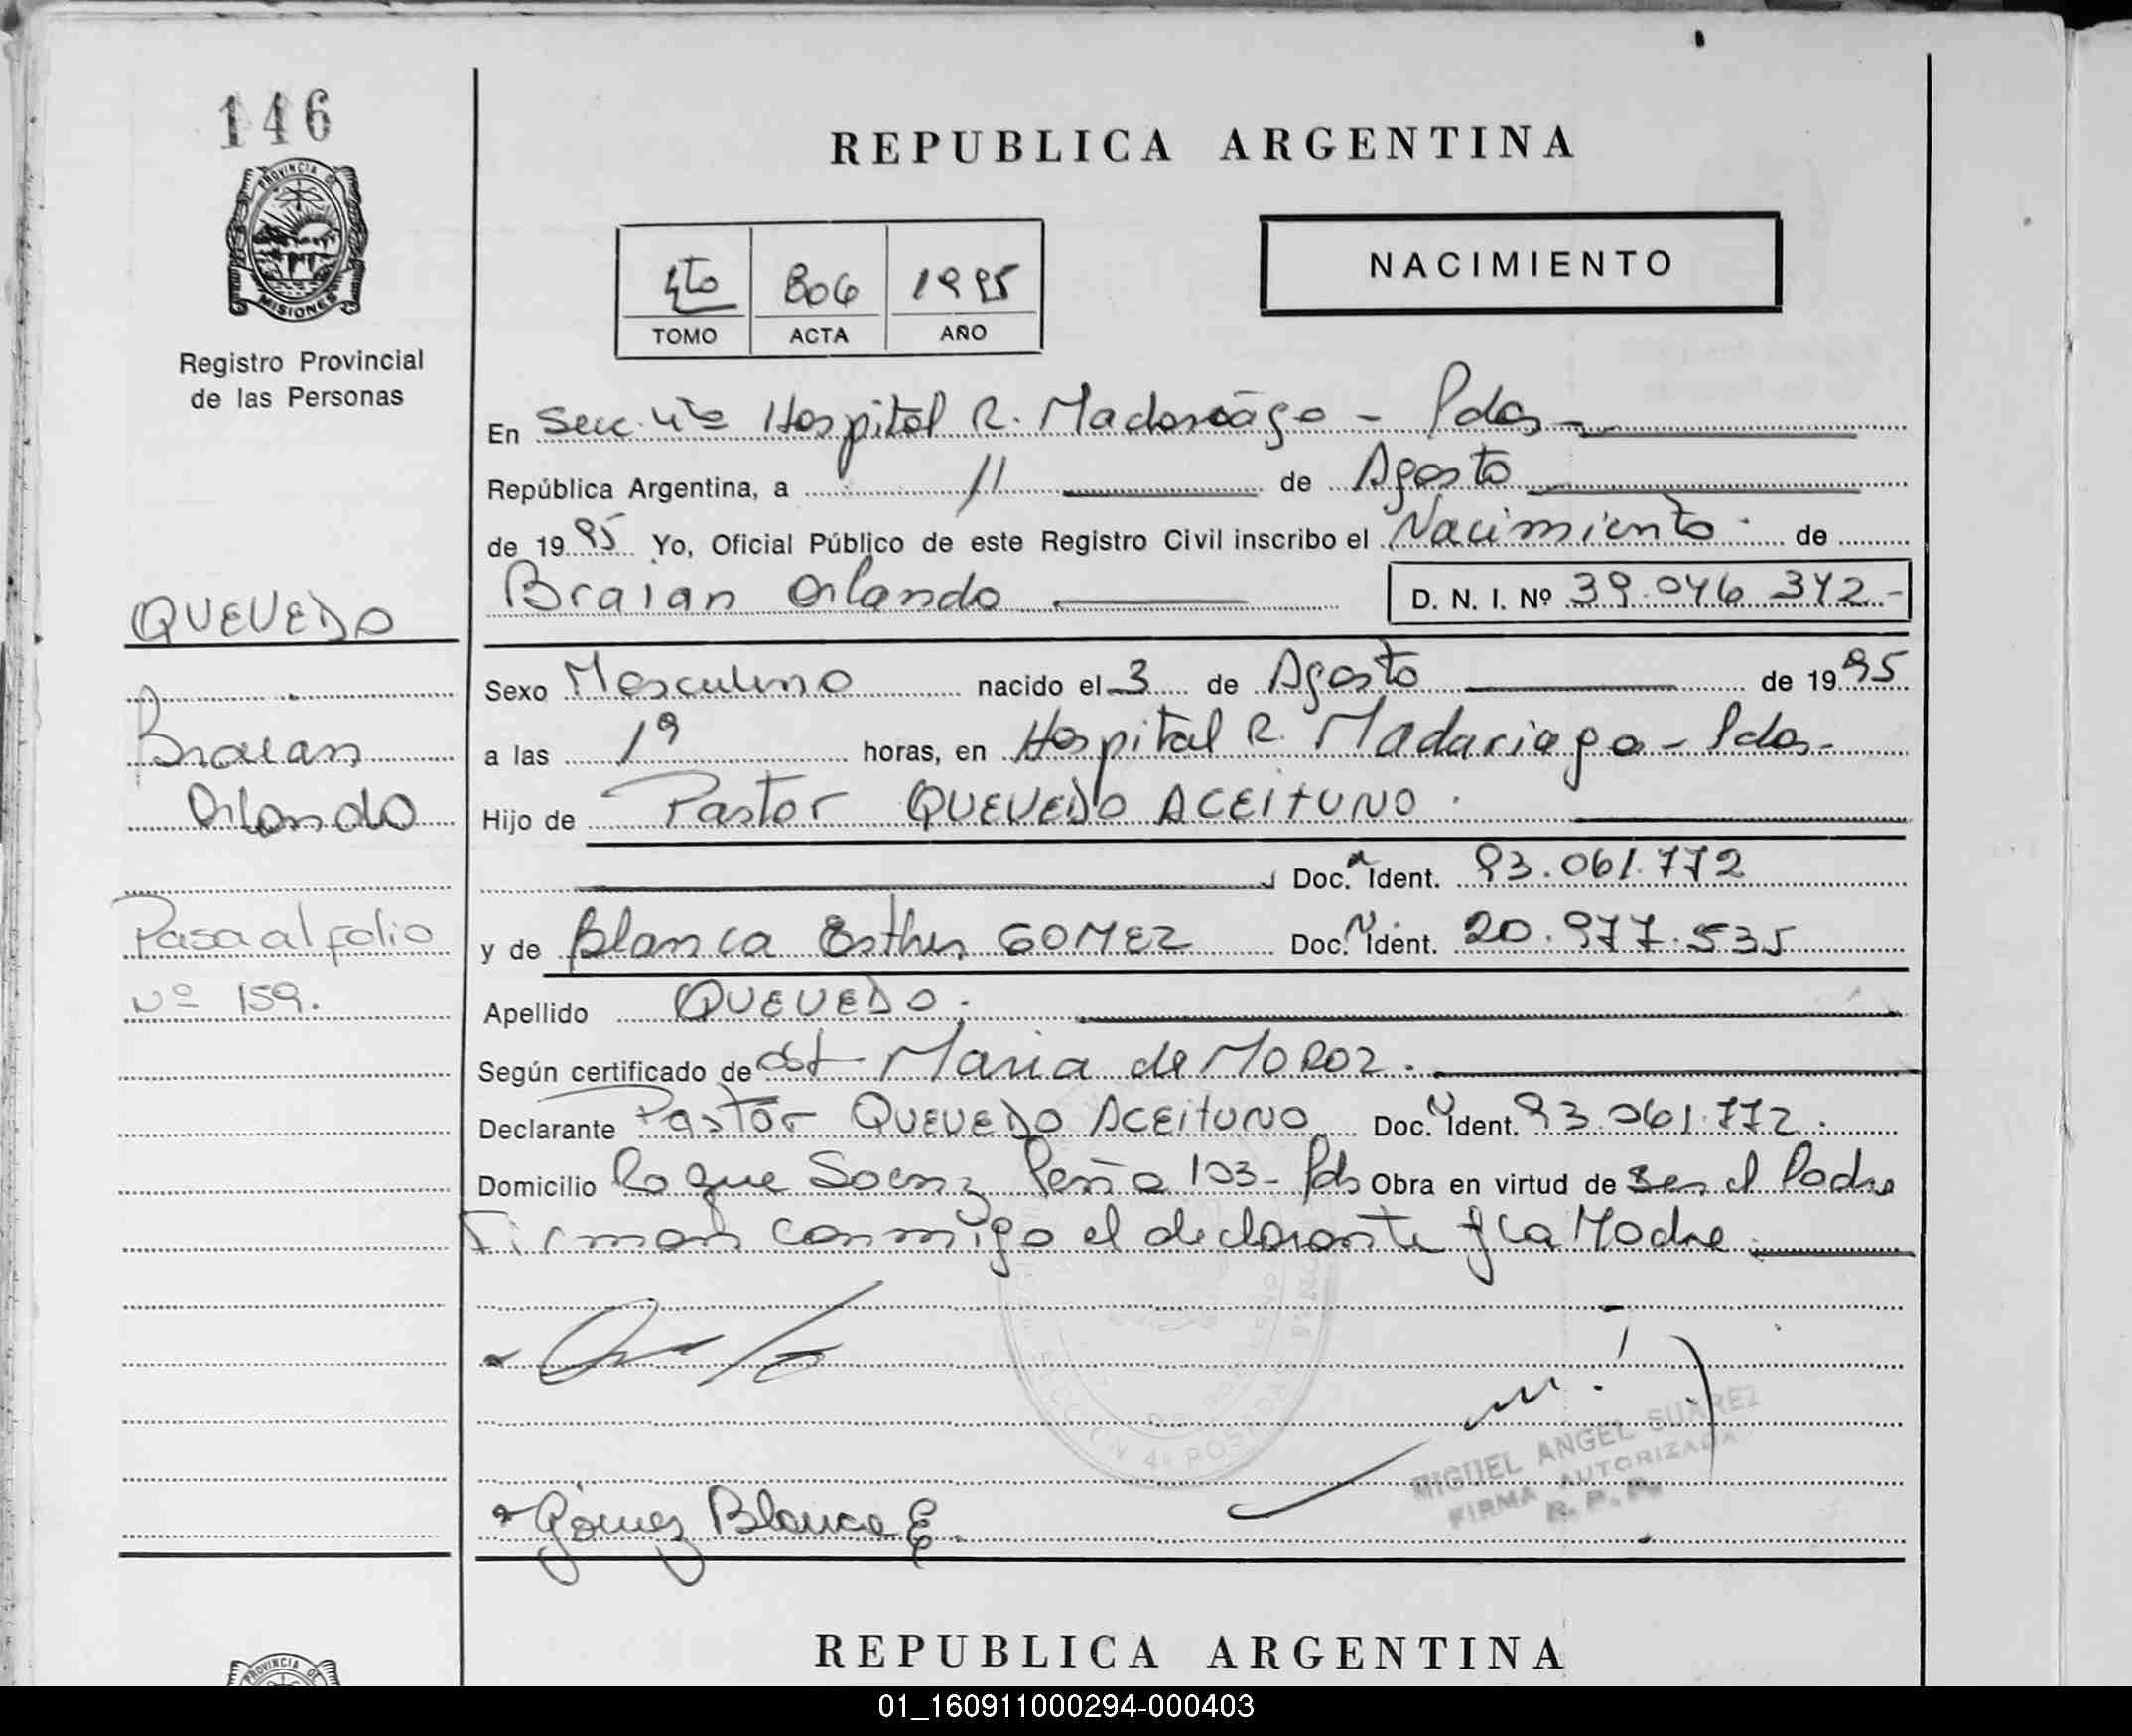 146
PROVINCIA DE
MISIONES
Registro Provincial
de las Personas
QUEVEDO
Braian
Orlando
Pasa al folio
Nº 159.
REPUBLICA ARGENTINA
4to 806 1995
TOMO ACTA AÑO
NACIMIENTO
En Secc. 4ta Hospital R. Madariaga - Pdas -
República Argentina, a 11 de Agosto
de 1995 Yo, Oficial Público de este Registro Civil inscribo el Nacimiento de
Braian Orlando D. N. I. Nº 39.046 342.-
Sexo Masculino nacido el 3 de Agosto de 1995
a las 19 horas, en Hospital R. Madariaga - Pdas -
Hijo de Pastor QUEVEDO ACEITUNO.
Doc. Ident. 93.061.772
y de Blanca Esther GOMEZ Doc. Ident. 20.977.535
Apellido QUEVEDO.
Según certificado de obst Maria de MOROZ.
Declarante Pastor QUEVEDO ACEITUNO Doc. Ident. 93.061.772.
Domicilio Roque Saenz Peña 103 - Pds Obra en virtud de ser el Padre
Firman conmigo el declarante y la Madre
MIGUEL ANGEL SUAREZ
FIRMA AUTORIZADA
R. P. P.
Gómez Blanca E.
REPUBLICA ARGENTINA
PROVINCIA DE
01_160911000294-000403